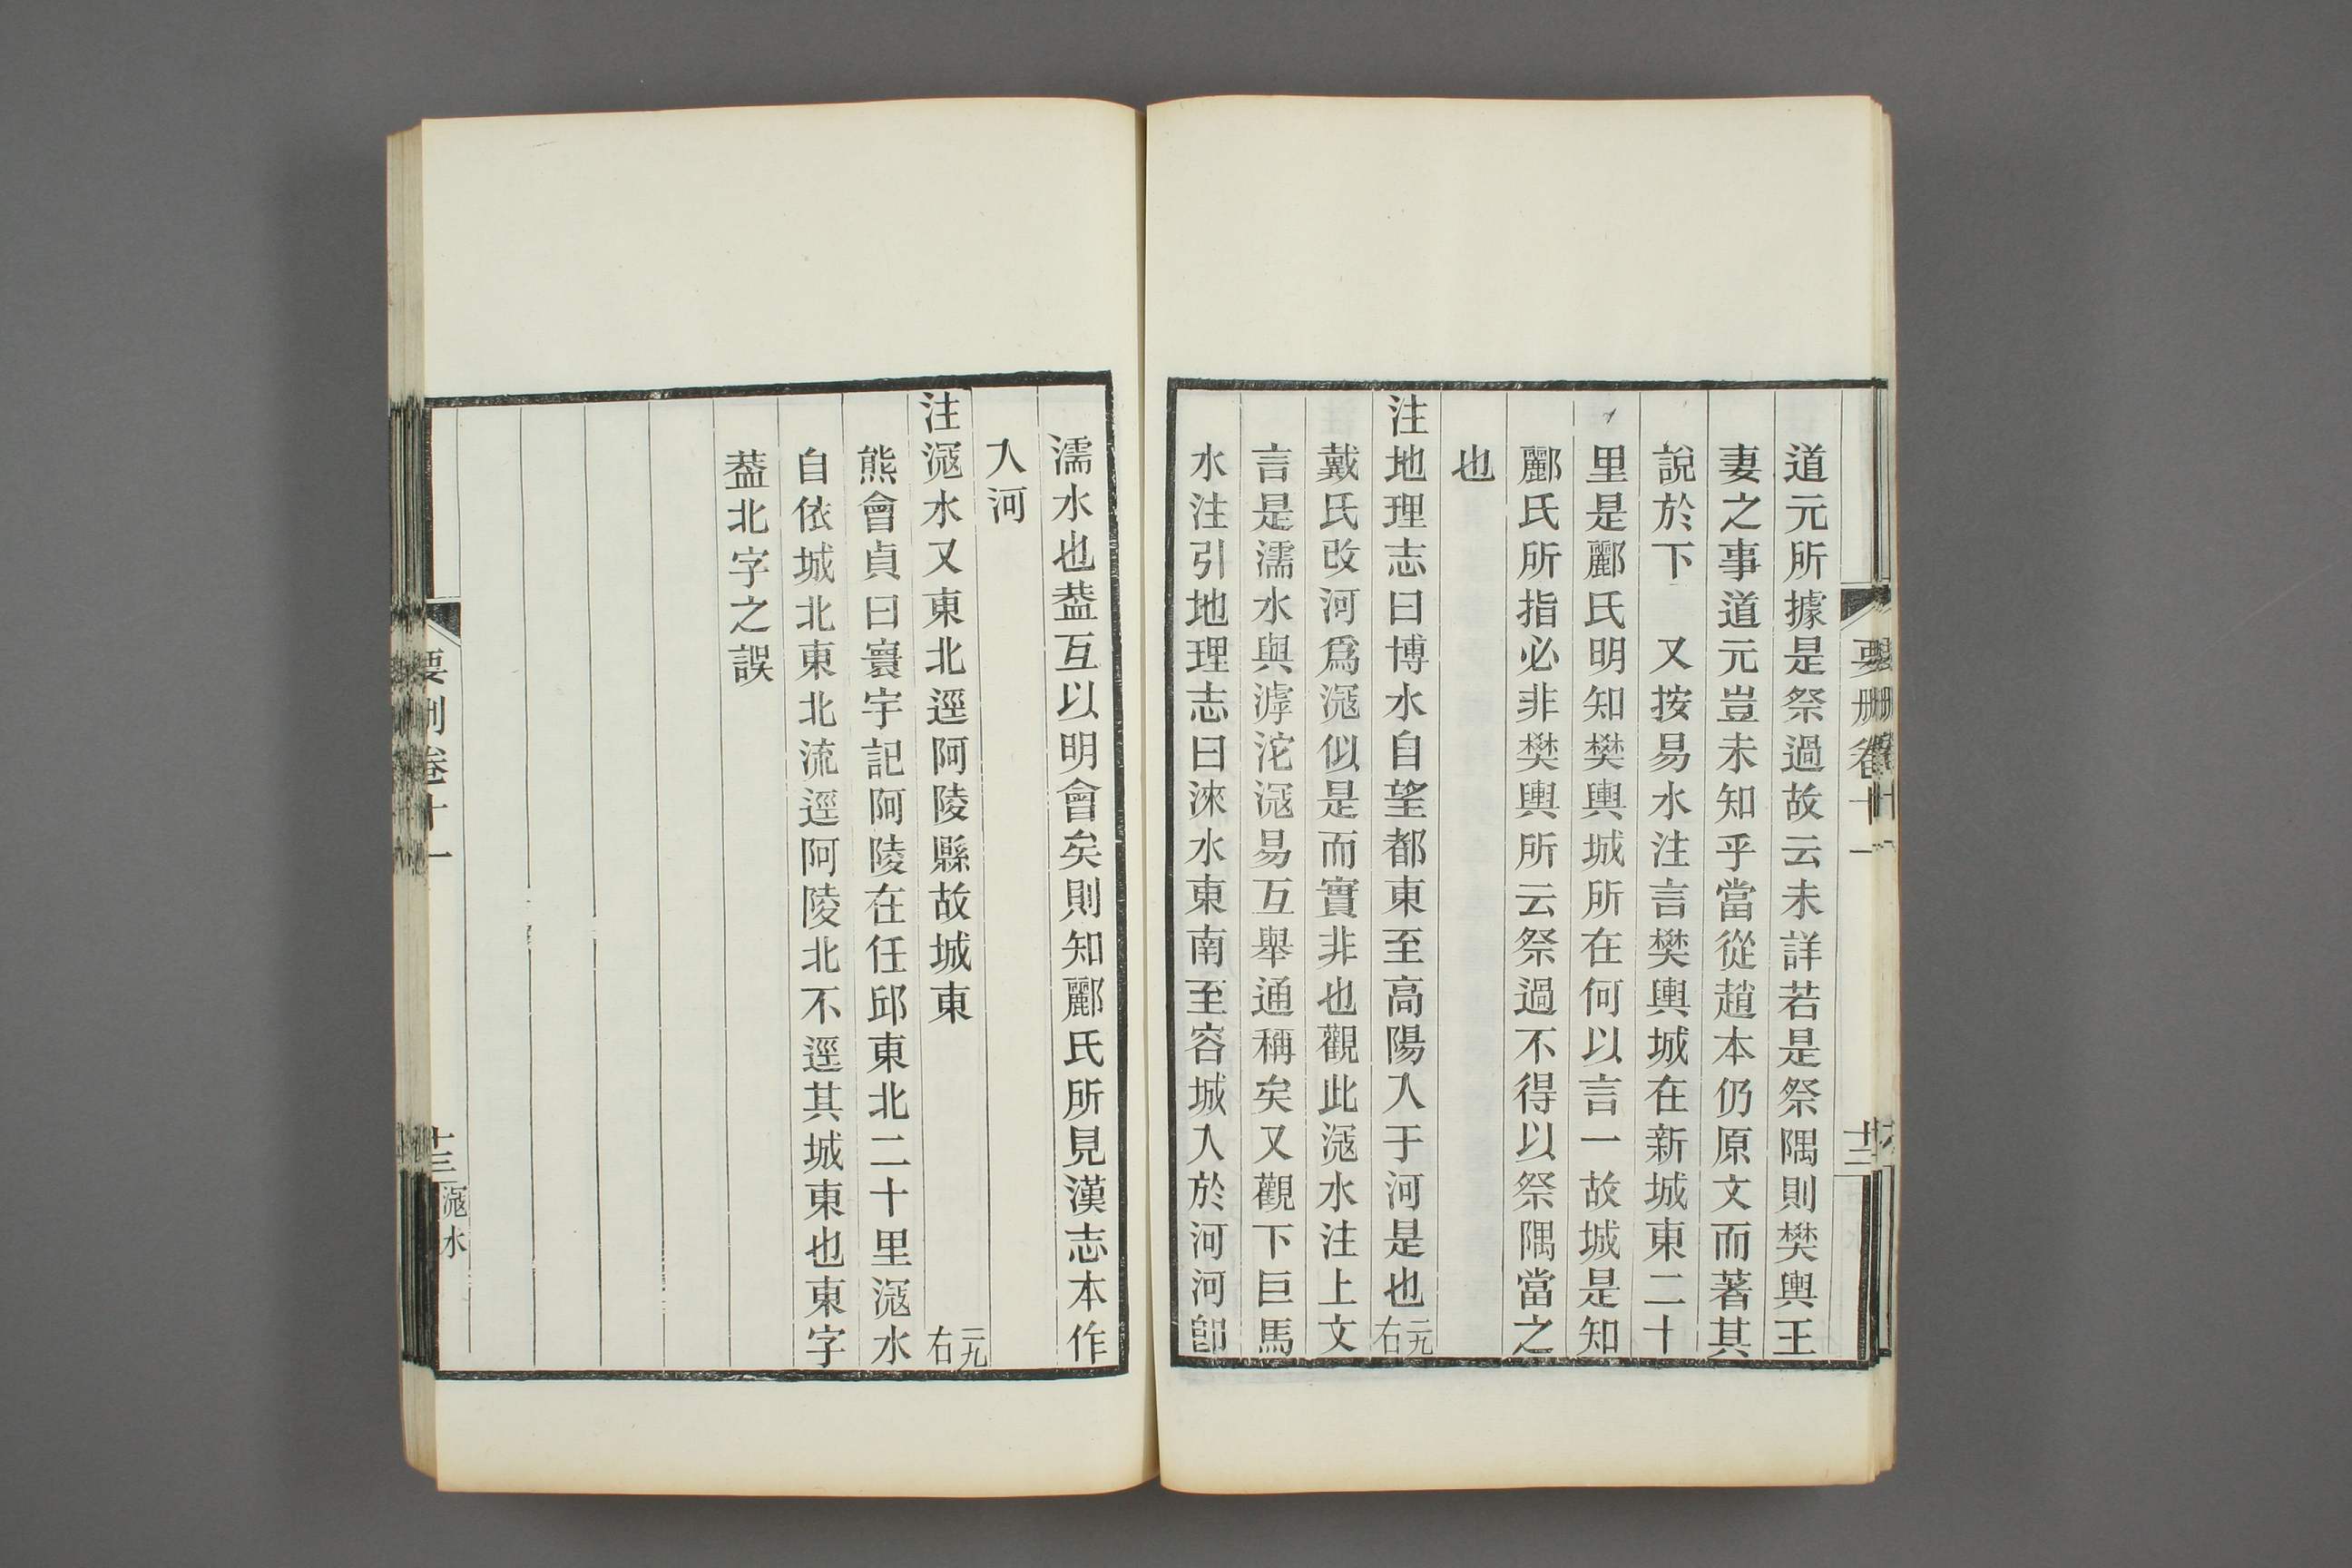 要刪卷十一
十二
道元所據是祭過故云未詳若是祭隅則樊輿王
妻之事道元豈未知乎當從趙本仍原文而著其
說於下　又按易水注言樊輿城在新城東二十
里是酈氏明知樊輿城所在何以言一故城是知
酈氏所指必非樊輿所云祭過不得以祭隅當之
也
注地理志曰博水自望都東至高陽入于河是也二九右
戴氏改河爲滱似是而實非也觀此滱水注上文
言是濡水與滹沱滱易互舉通稱矣又觀下巨馬
水注引地理志曰淶水東南至容城入於河河卽
濡水也葢互以明會矣則知酈氏所見漢志本作
入河
注滱水又東北逕阿陵縣故城東二九右
熊會貞曰寰宇記阿陵在任邱東北二十里滱水
自依城北東北流逕阿陵北不逕其城東也東字
葢北字之誤
要刪卷十一
十三
滱水